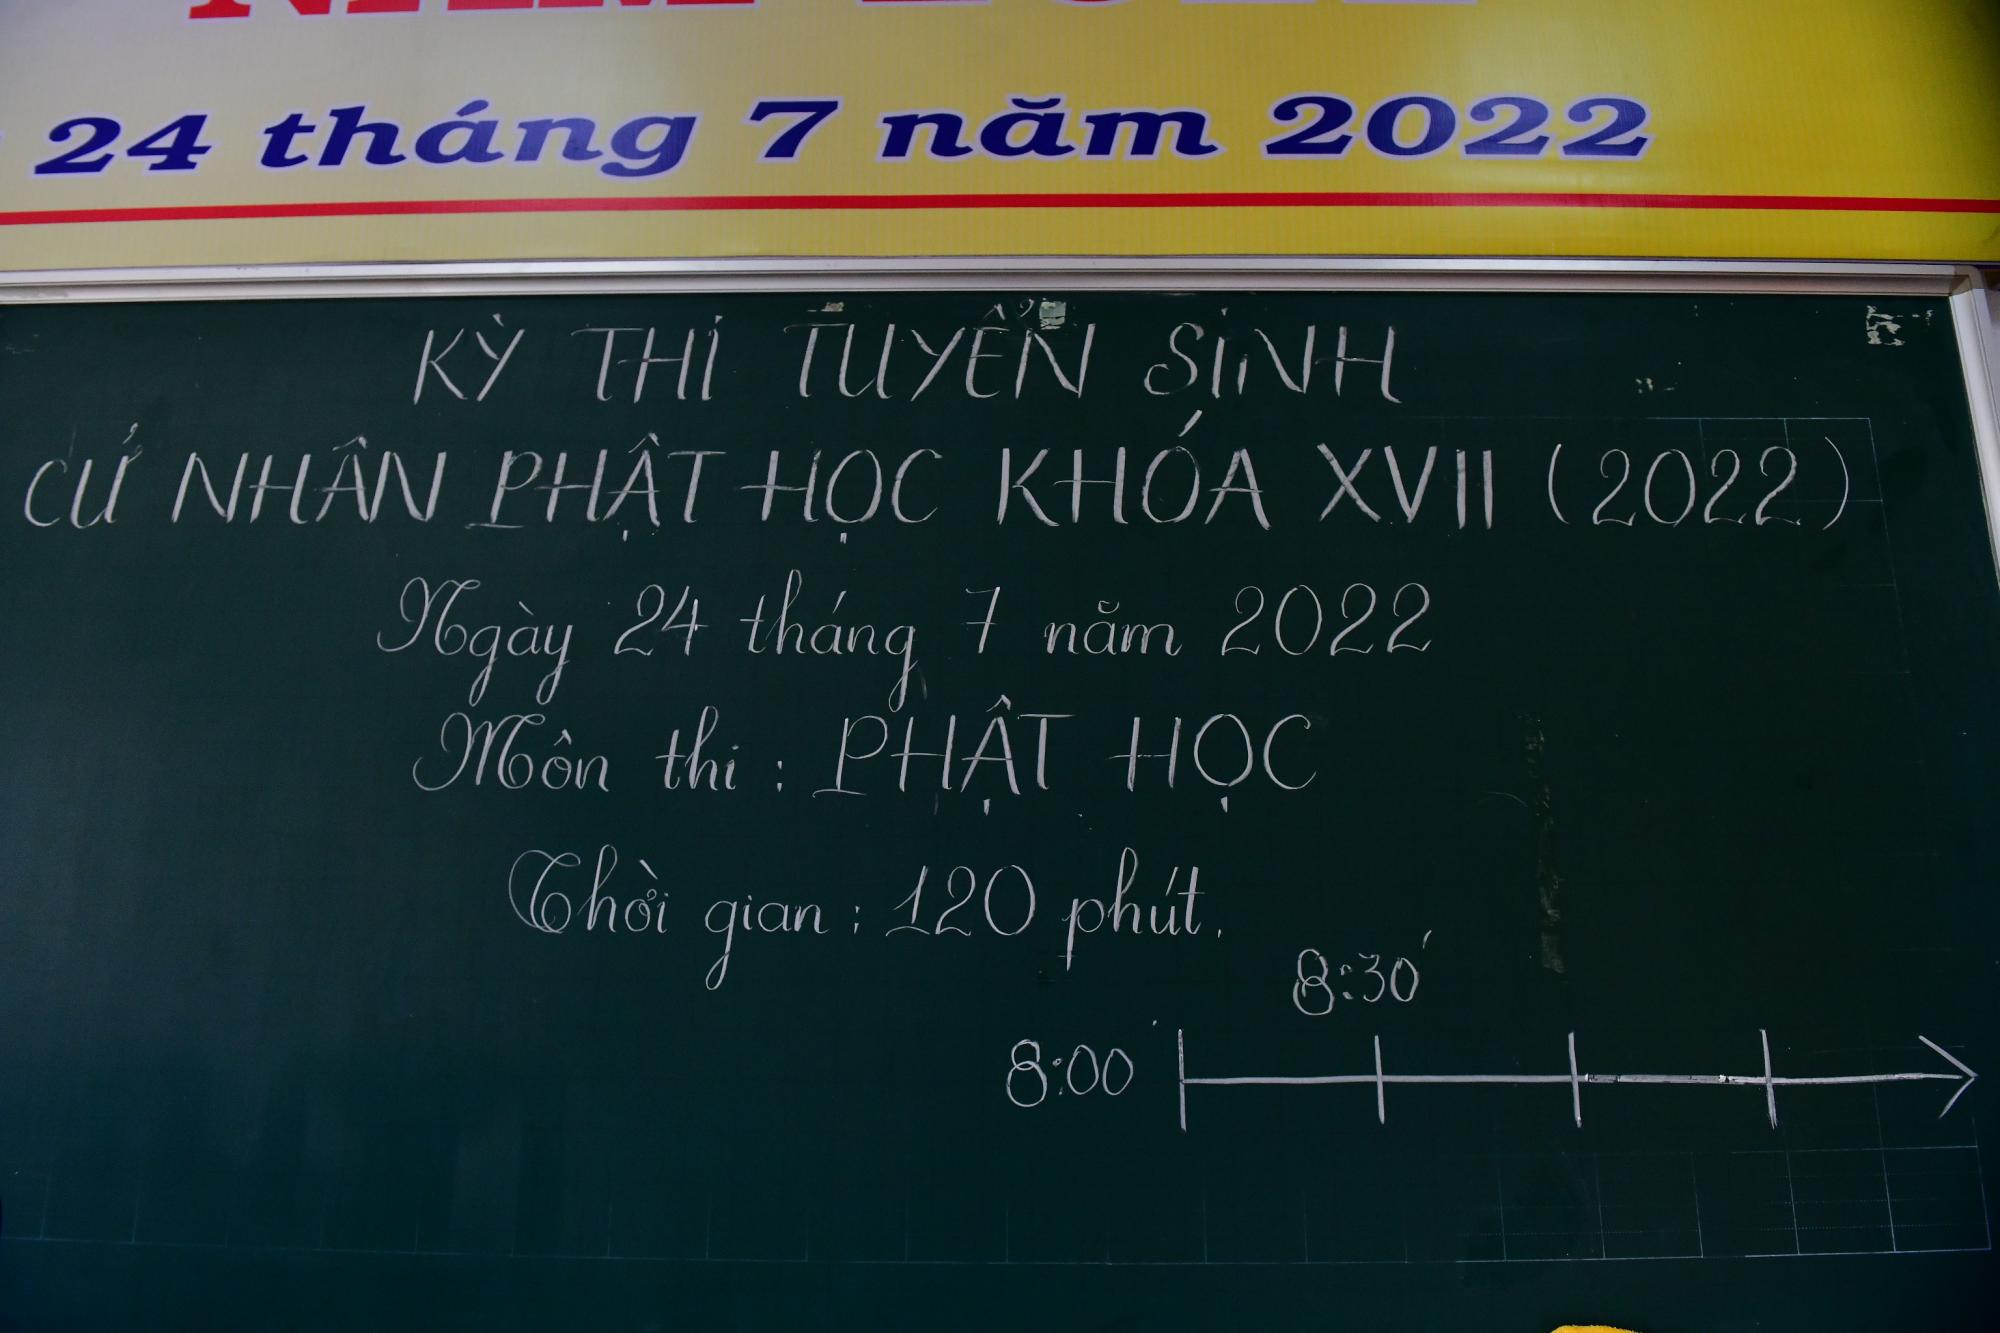 NĂM 2022
24 tháng 7 năm 2022
KỲ THI TUYỂN SINH
CỬ NHÂN PHẬT HỌC KHÓA XVII (2022)
Ngày 24 tháng 7 năm 2022
Môn thi : PHẬT HỌC
Thời gian : 120 phút.
8:30'
8:00'